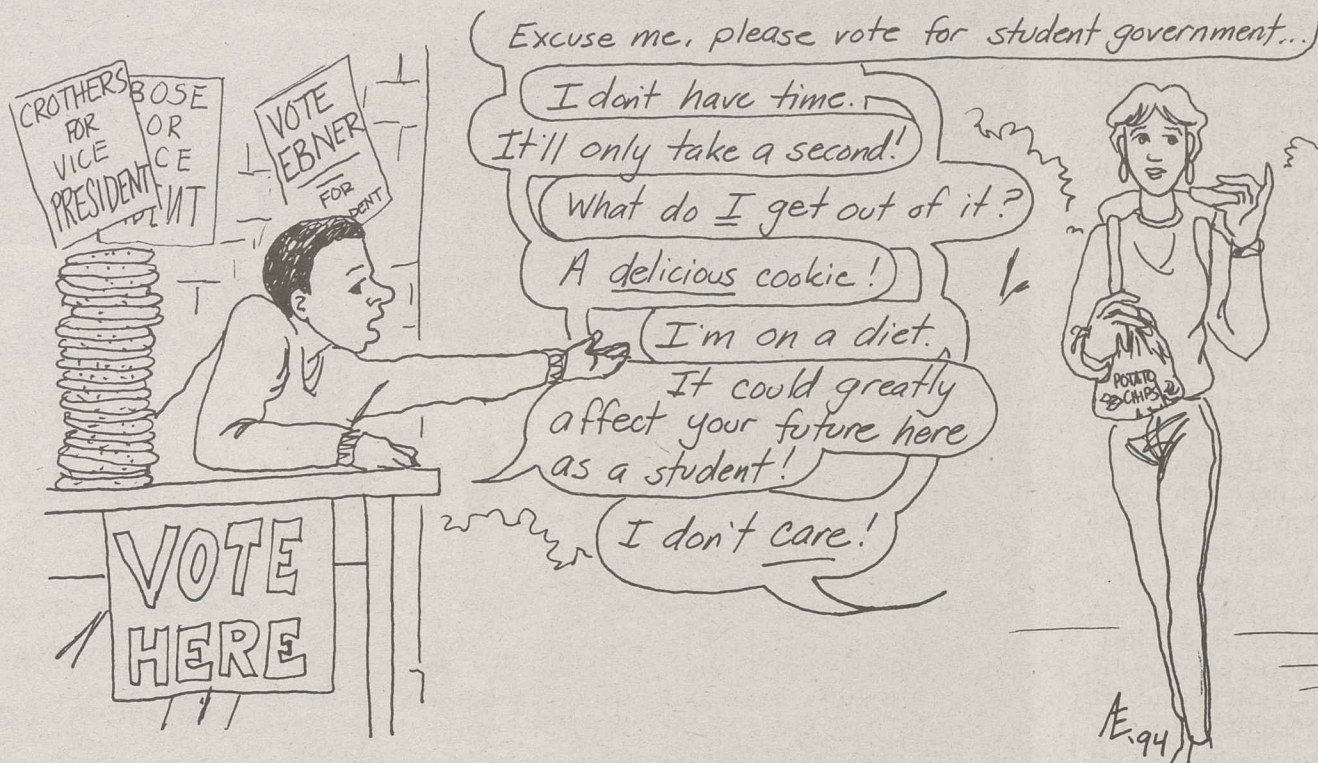 CROTHERS
FOR
VICE
PRESIDENT
BOSE
OR
CE
ENT
VOTE
EBNER
FOR
DENT
Excuse me, please vote for student government...
I don't have time.
It'll only take a second!
What do I get out of it?
A delicious cookie!
I'm on a diet.
It could greatly
affect your future here
as a student!
I don't care!
POTATO
CHIPS
VOTE
HERE
Æ.94